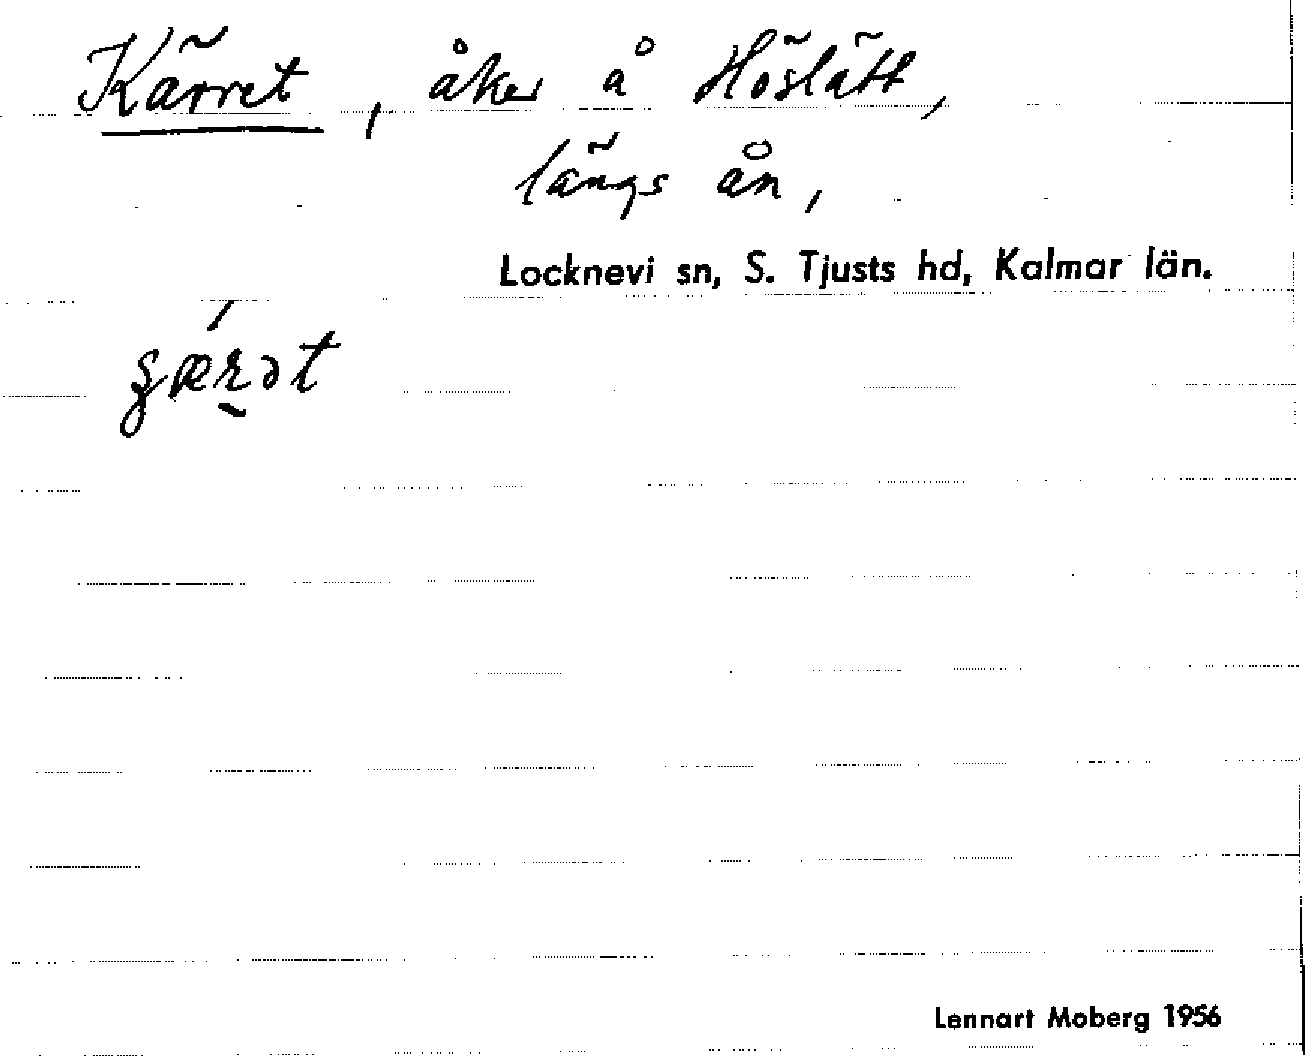 Kärret, åker å Höslätt,
längs ån,
Locknevi sn, S. Tjusts hd, Kalmar län.
Lennart Moberg 1956